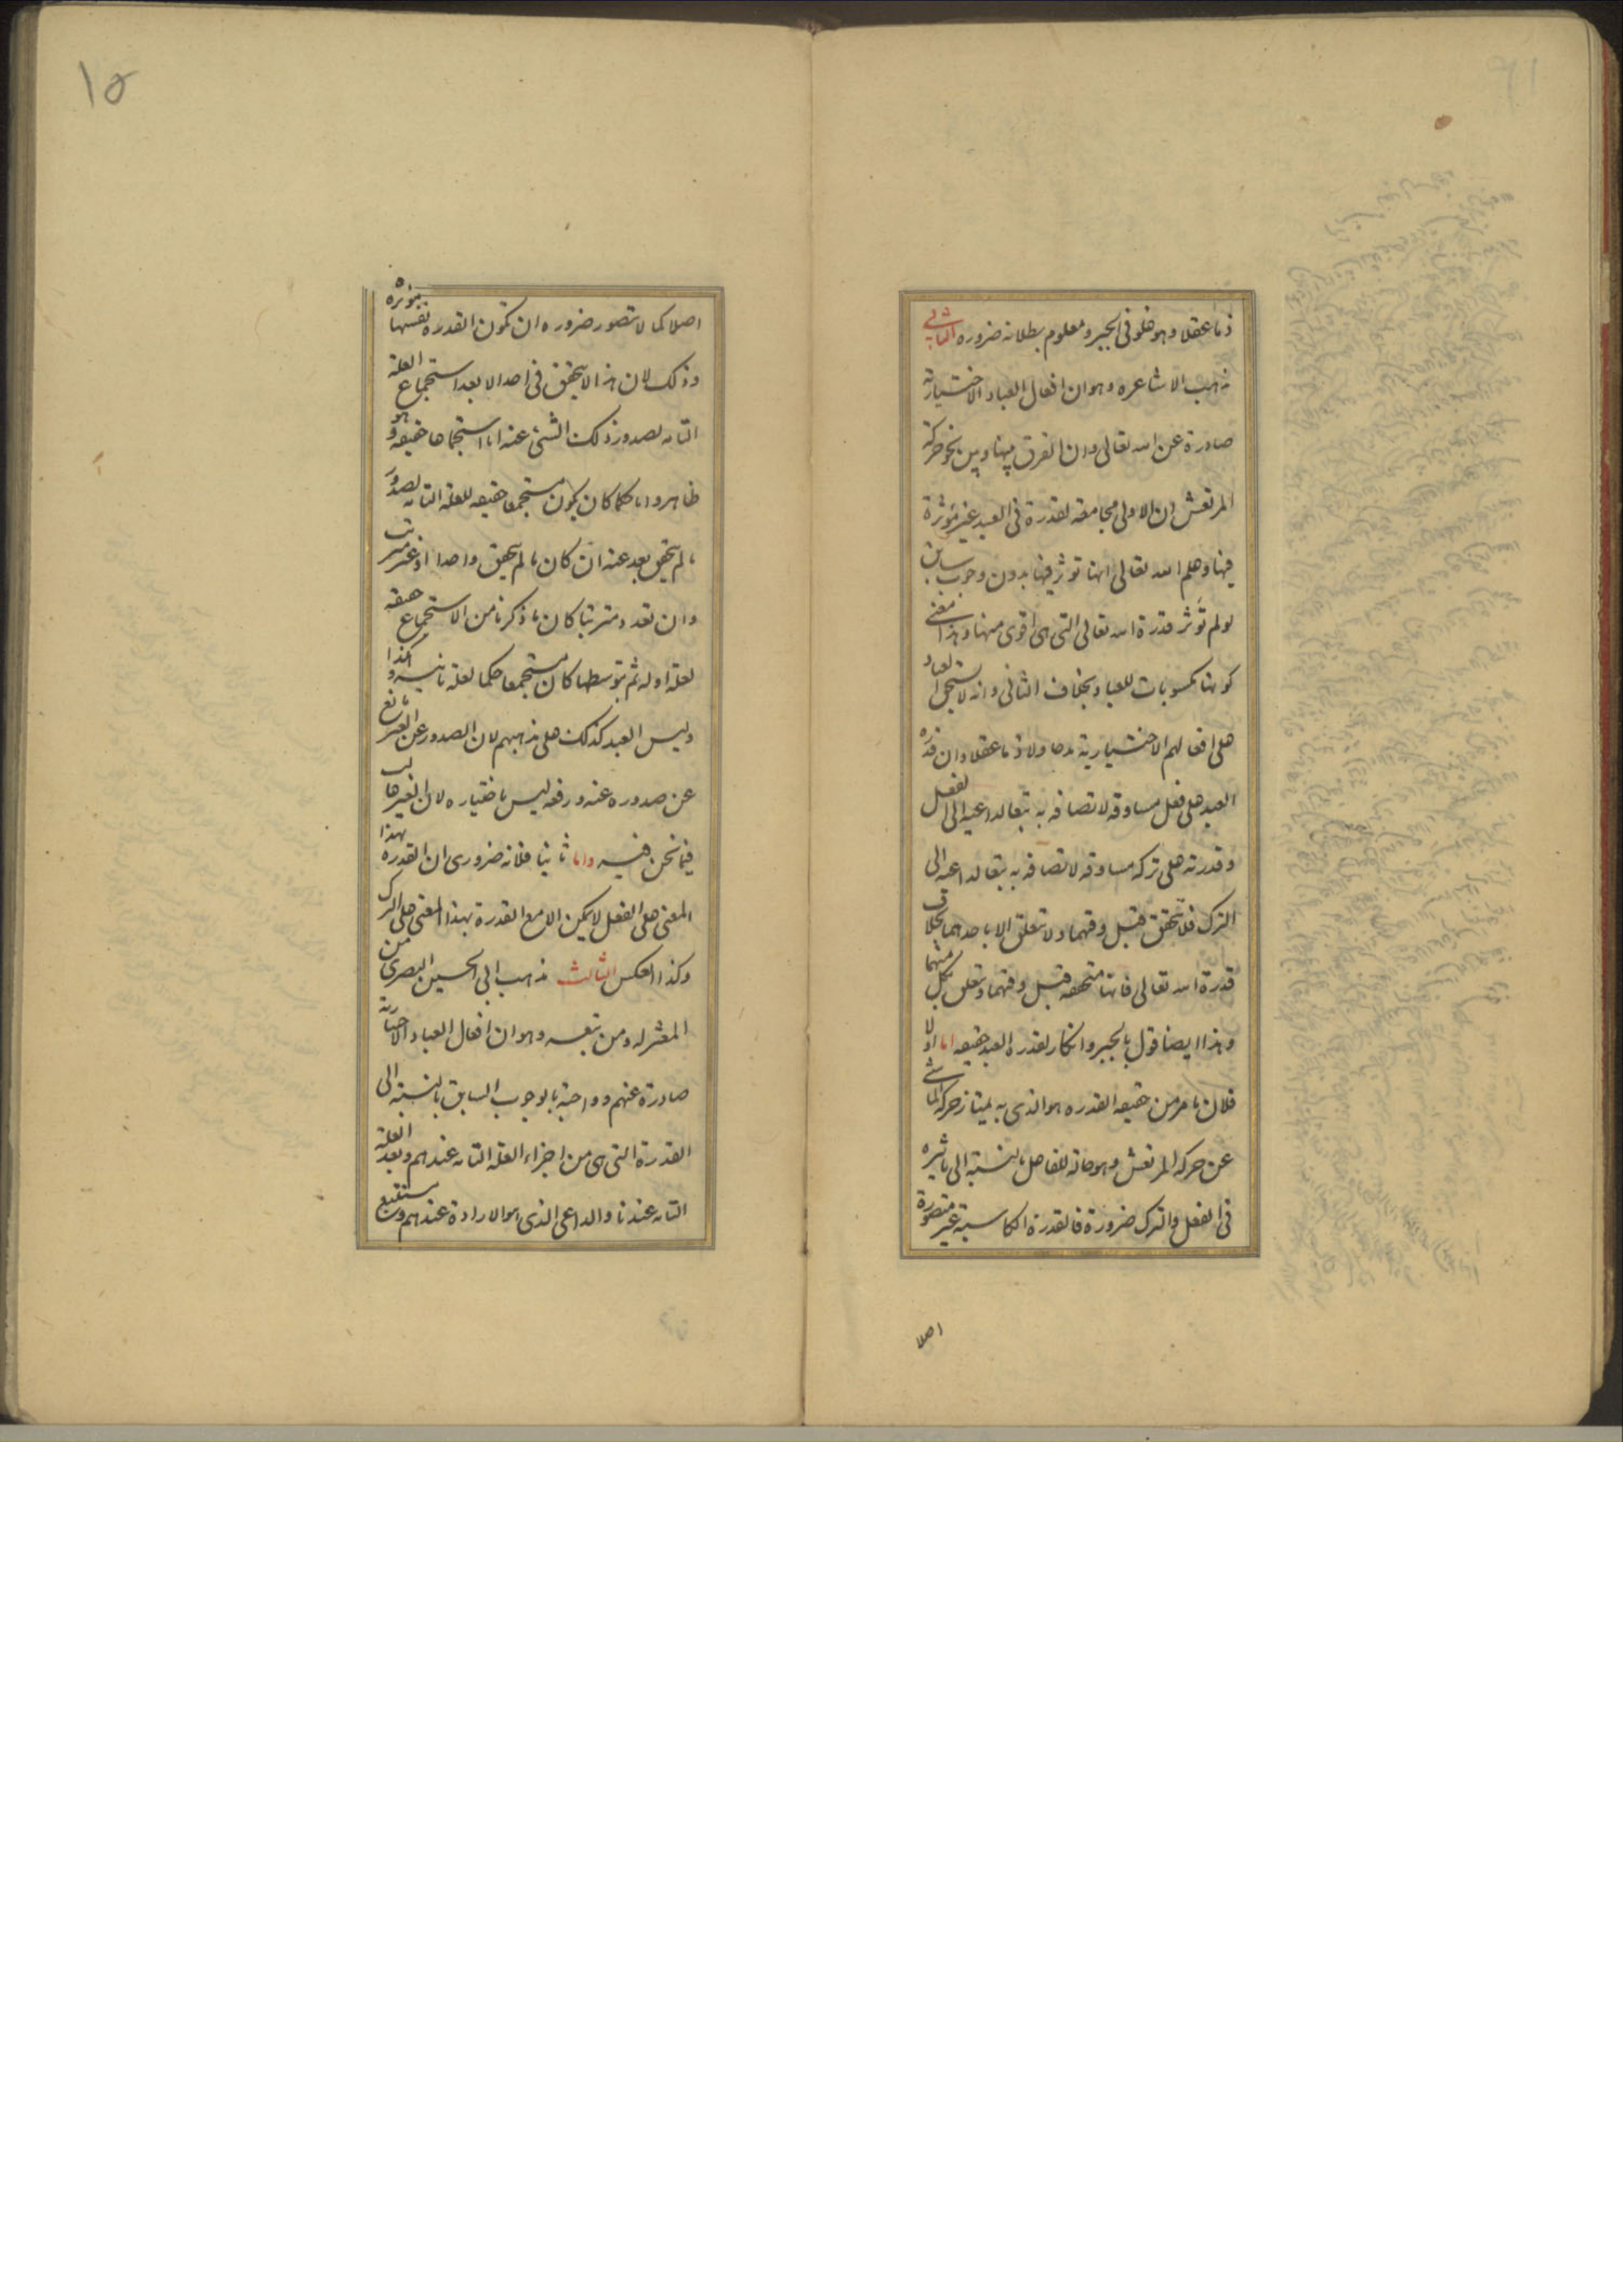 ذما عقلا وهو غلو فى الجبر ومعلوم بطلانه ضرورة الثانى
مذهب الاشاعره وهو ان افعال العباد الاختيارية
صادرة عن الله تعالى وان الفرق بينها وبين نحو حركة
المرتعش ان الاولى مجامعة لقدرة فى العبد غير مؤثرة
فيها وعلم الله تعالى انها تؤثر فيها بدون وجوب سابق
لو لم تؤثر قدرة الله تعالى التى هى اقوى منها وهذا معنى
كونها مكسوبات للعباد بخلاف الثانى وانه لا يستحق العباد
على افعالهم الاختيارية مدحا ولا ذما عقلا وان قدرة
العبد على فعل مساوقة لاتصافه به تبعا لداعيه الى الفعل
وقدرته على تركه مساوقة لاتصافه به تبعا لداعيه الى
الترك فلا تحقق قبل وقتهما ولا تتعلق الا باحدهما بخلاف
قدرة الله تعالى فانها متحققه قبل وقتهما وتتعلق بكل منهما
وهذا ايضا قول بالجبر وانكار لقدرة العبد حقيقه اما اولا
فلان ما مر من حقيقه القدره هو الذى به يمتاز حركة الماشى
عن حركه المرتعش وهو حاله للفاعل بالنسبة الى تاثيره
فى الفعل والترك ضرورة فالقدرة الكاسبة غير متصورة
اصلا
١٥
اصلا كما لا تتصور ضروره ان تكون القدره نفسها مؤثره
وذلك لان هذا لا يتحقق فى احد الا بعد استجماع العلة
التامه لصدور ذلك الشئ عنه اما استجماعا حقيقه وهو
ظاهر واما حكما كان يكون مستجمعا حقيقه للعلة التامه لصدور
ما لم يتحقق بعد عنه ان كان ما لم يتحقق واحدا او غير مترتب
وان تعدد مترتبا كان ما ذكرنا من الاستجماع حقيقه
لعلة اوله ثم بتوسطها كان مستجمعا حكما لعلة ثانيه وهكذا
وليس العبد كذلك على مذهبهم لان الصدور عن الغير مانع
عن صدوره عنه ورفعه ليس باختياره لان الغير غالب
فيما نحن فيه واما ثانيا فلانه ضرورى ان القدره بهذا
المعنى على الفعل لا يمكن الا مع القدرة بهذا المعنى على الترك
وكذا العكس الثالث مذهب ابى الحسين البصرى من
المعتزله ومن تبعه وهو ان افعال العباد الاختيارية
صادرة عنهم وواجبة بالوجوب السابق بالنسبة الى
القدرة التى هى من اجزاء العلة التامه عندهم وبعد العلة
التامه عندنا والداعى الذى هو الارادة عندهم ومستتبع